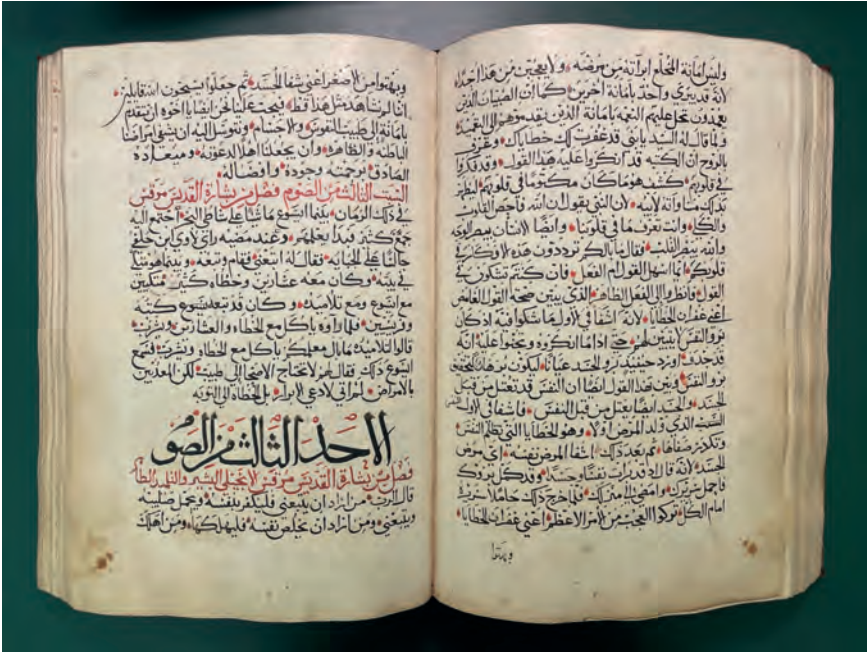 وليس امانة المخلع ابرأته من مرضه * ولا يعجبن من هذا احدا
لانه قد يبري واحد بامانة آخرين * كما ان الصبيان الذين
يعمدون تحل عليهم النعمه بامانة الذين يقدموهم الى
ولما قال له السيد يا بني قد غفرت لك خطاياك * وعرف
بالروح ان الكتبه قد انكروا عليه هذا القول * وقد فكروا
في قلوبهم * كشف هو ما كان مكتوما في قلوبهم * ليظهر
بذلك مساواته لابيه * لان النبي يقول ان الله فاحص القلوب
والكلا * وانت تعرف ما في قلوبنا * وايضا الانسان ينظر الوجه
والله ينظر القلب * فقال ما بالكم ترددون هذه الافكار في
قلوبكم * ايما اسهل القول ام الفعل * فان كنتم تشكون في
القول * فانظروا الى الفعل الظاهر * الذي يبين صحة القول الغامض
اعني غفران الخطايا * لانه اشفا في الاول ما شكوا فيه اذ كان
برو النفس لا يتبين لهم * حتى اذا ما انكروه عليه انه
قد جدف * اورد حينيذ برو الجسد عيانا * ليكون برهانا لتحقيق
برو النفس * ويبين بهذا القول ايضا ان النفس قد تعتل من قبل
الجسد * والجسد ايضا يعتل من قبل النفس * فاشفا في الاول
السبب الذي ولد المرض اولا * وهو الخطايا التي تظلم النفس
وتكدر صفاها * ثم بعد ذلك اشفا المرض نفسه * اي مرض
الجسد * لانه قال له قد برات نفسا وجسدا * وقد كمل بروك
فاحمل سريرك * وامضي الى منزلك * فلما خرج ذلك حاملا سريره
امام الكل * تركوا العجب من الامر الاعظم * اعني غفران الخطايا *
وبهتوا
وبهتوا من الاصغر اعني شفا الجسد * ثم جعلوا يسبحون الله قايلين *
اننا لم نشاهد مثل هذا قط * فيجب علينا نحن ايضا يا اخوه ان نتقدم
بامانة الى طبيب النفوس والاجسام * ونتوسل اليه ان يشفي امراضنا
الباطنه والظاهره * وان يجعلنا اهلا لدعوته * وميعاده
الصادق * برحمته وجوده * وافضاله *
السبت الثالث من الصوم فصل من بشارة القديس مرقس
في ذلك الزمان * بينما ايسوع ماشيا على شاطى البحر * اجتمع اليه
جمع كثير فبدا يعلمهم * وعند مضيه راى لاوي ابن حلفى
جالسا على الجبايه * فقال له اتبعني فقام وتبعه * وبينما هو متكيا
في بيته * وكان معه عشارين وخطاه كثير متكيين
مع ايسوع ومع تلاميذه * وكان قد تبعه كتبه
وفريسين * فلما راوه ياكل مع الخطاه والعشارين ويشرب *
قالوا لتلاميذه ما بال معلمكم ياكل مع الخطاه ويشرب * فسمع
ايسوع ذلك * فقال لهم لا تحتاج الاصحا الى طبيب * لكن المعذبين
بالامراض * لم اتي لادعي الابرار بل الخطاه الى التوبه
الاحد الثالث من الصوم
فصل من بشارة القديس مرقس الانجيلي
قال الرب * من اراد ان يتبعني * فليكفر بنفسه * ويحمل صليبه
ويتبعني * ومن اراد ان يخلص نفسه * فليهلكها * ومن اهلك